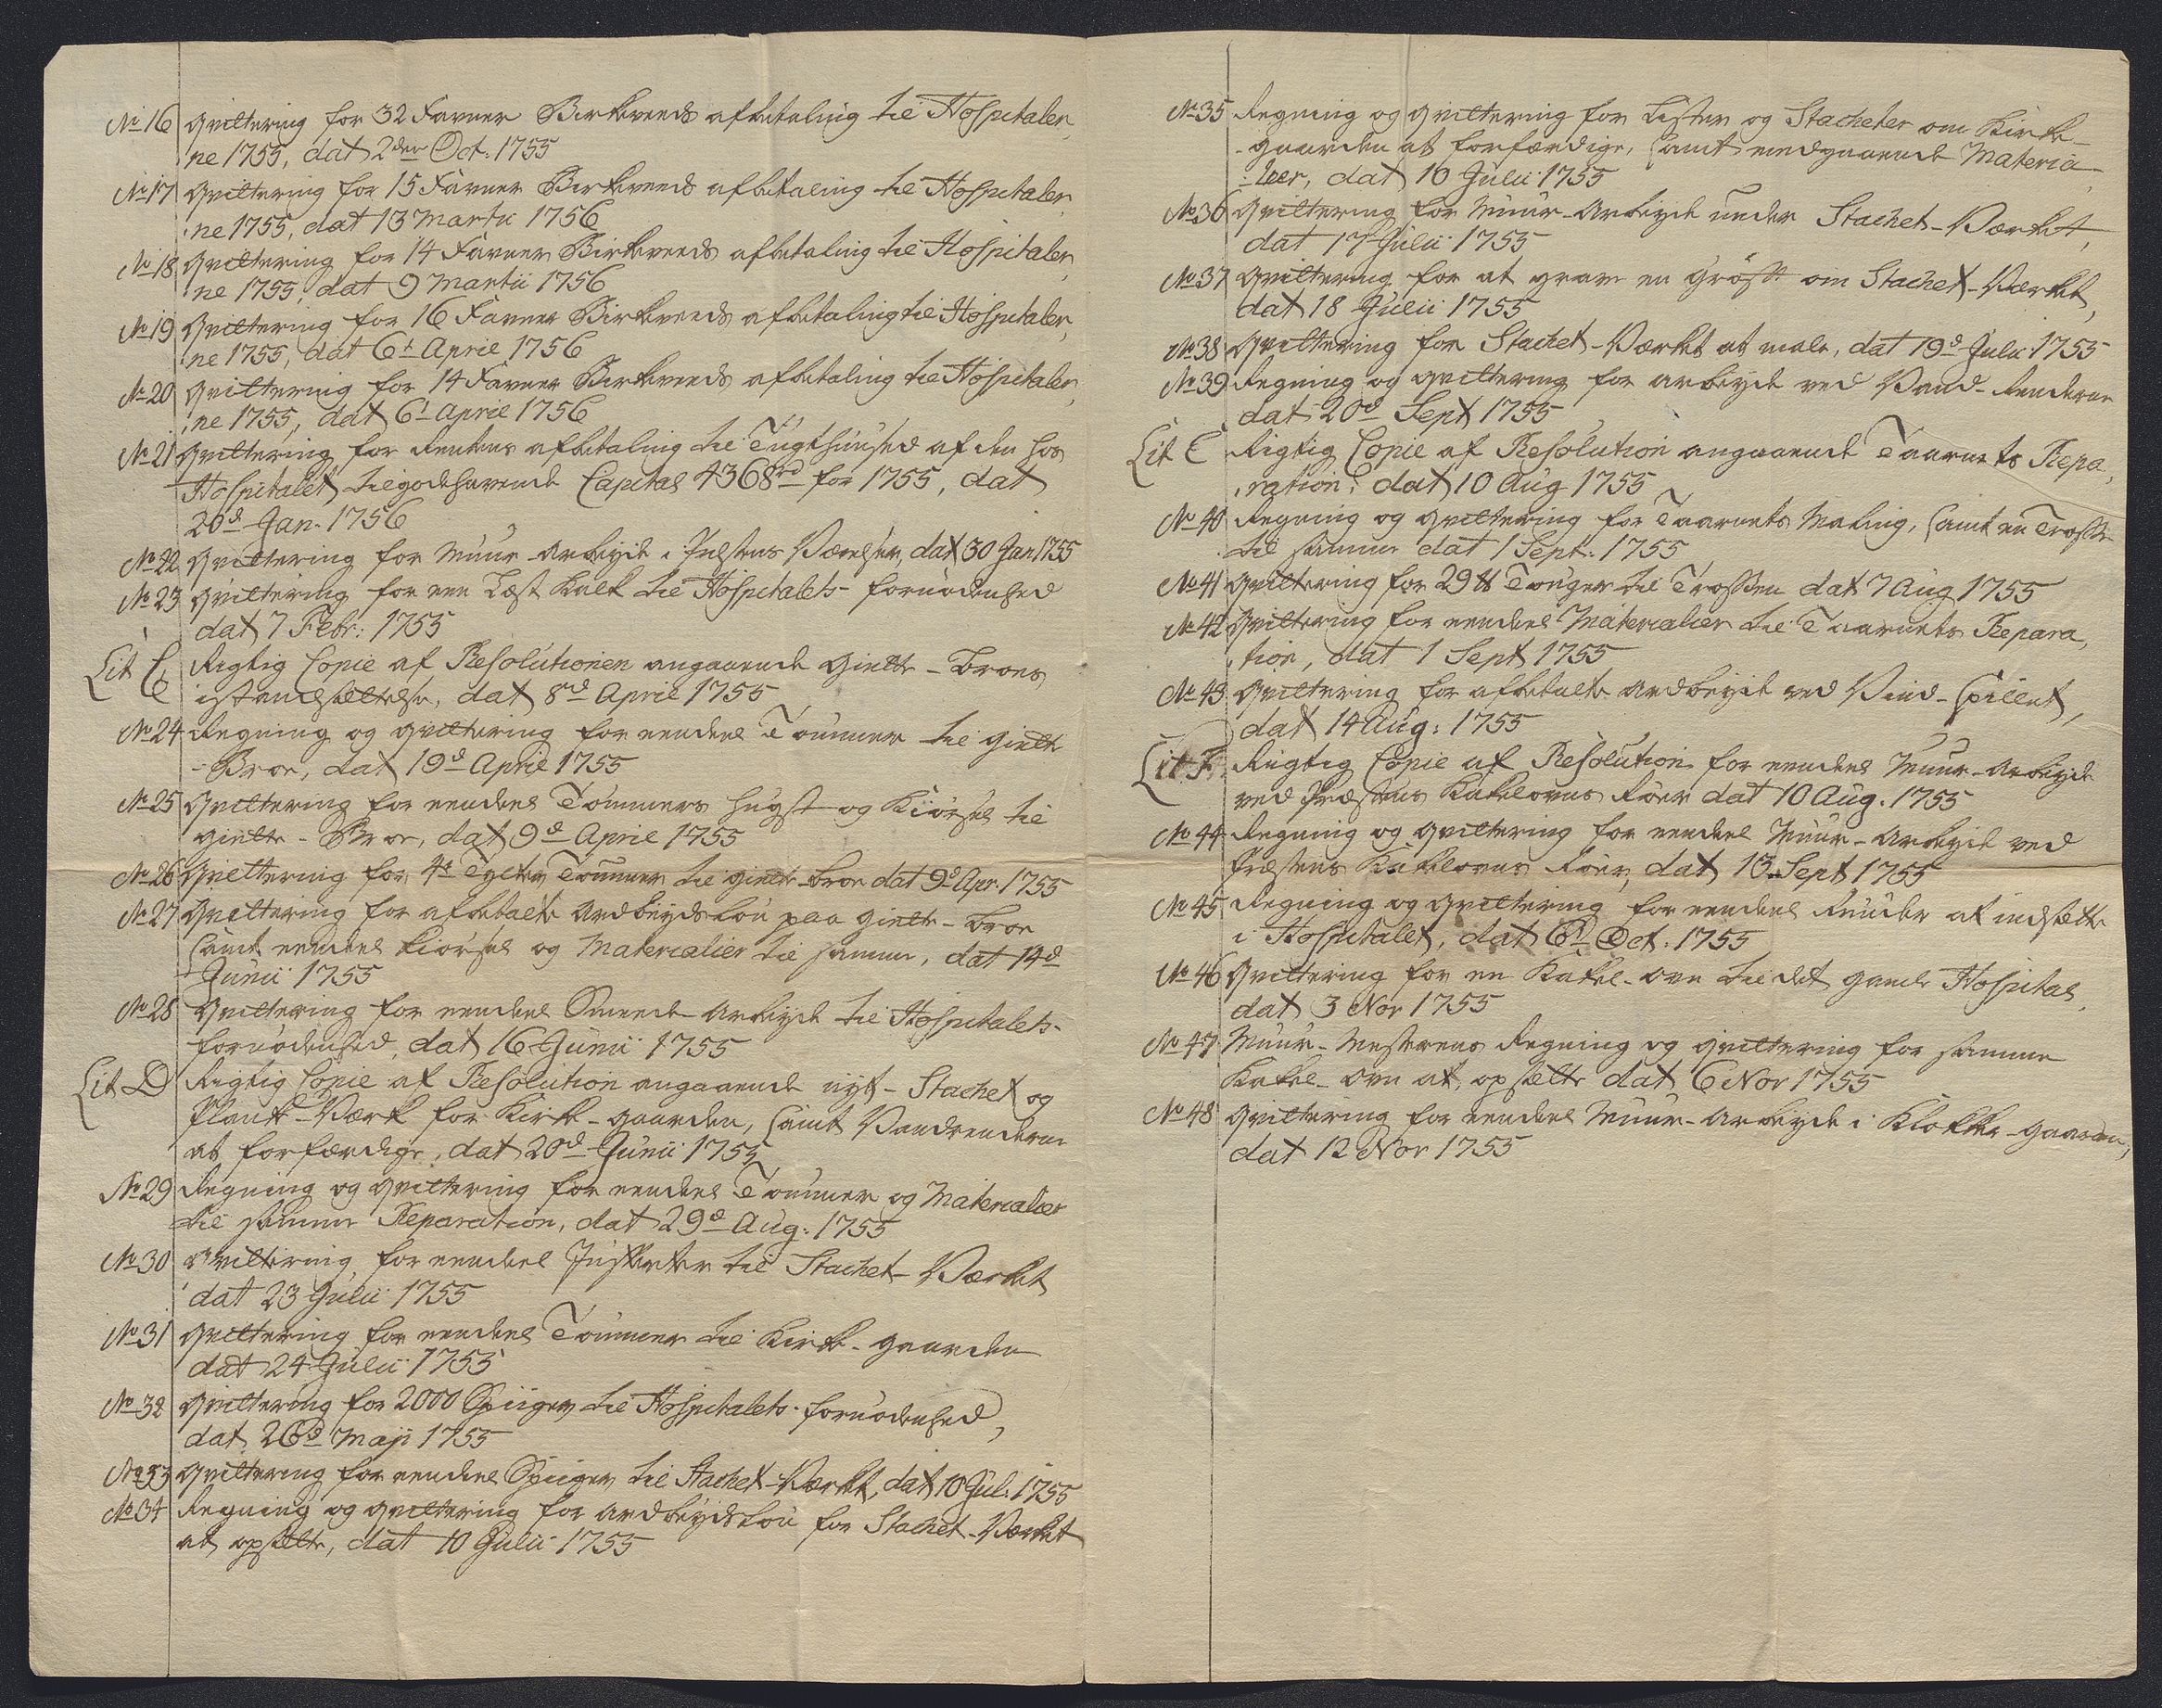 No 16 Qvittering for 32 Favner Birkeveeds afbetaling til Hospitaler,
ne 1755, dat 2den Oct: 1755
No 17 Qvittering for 15 Favner Birkeveeds afbetaling til Hospitaler,
ne 1755, dat 13 Martii 1756
No 18 Qvittering for 14 Favner Birkeveeds afbetaling til Hospitaler,
ne 1755, dat 9 Martii 1756
No 19 Qvittering for 16 Favner Birkeveeds afbetaling til Hospitaler,
ne 1755, dat 6t April 1756
No 20 Qvittering for 14 Favner Birkeveeds afbetaling til Hospitaler,
ne 1755, dat 6t April 1756
No 21 Qvittering for Rentens afbetaling til Tugthuuset af den hos
Hospitalet tilgodehavende Capital 4368rd for 1755, dat
20d Jan. 1756
No 22 Qvittering for Muur-Arbeyde i Præstens Værelser, dat 30 Jan 1755
No 23 Qvittering for een Læst Kalk til Hospitalets fornødenhed
dat 7 Febr: 1755
Lit C Rigtig Copie af Resolutionen angaaende Gielle-Broes
istandsættelse, dat 8d April 1755
No 24 Regning og Qvittering for eendeel Tømmer til Gielle
-Broe, dat 19d April 1755
No 25 Qvittering for eendeel Tømmers hugst og Kiørsel til
Gielle-Broe, dat 9d April 1755
No 26 Qvittering for 4t Tylter Tømmer til Gielle-broe dat 9d Apr. 1755
No 27 Qvittering for afbetalte Ardbeydsløn paa Gielle-broe
samt eendeel kiørsel og Materialier til samme, dat 14d
Junii 1755
No 28 Qvittering for eendeel Smede-Arbeyde til Hospitalets
fornødenhed, dat 16 Junii 1755
Lit D Rigtig Copie af Resolution angaaende nyt-Stachet og
Plank-Værk for Kirke-gaarden, samt Vandrenderne
at forfærdige, dat 20d Junii 1755
No 29 Regning og Qvittering for eendeel Tømmer og Materialier
til samme Reparation, dat 29d Aug: 1755
No 30 Qvittering for eendeel til Stachet-Værket
dat 23 Julii 1755
No 31 Qvittering for eendeel Tømmer til Kirke-gaarden
dat 24 Julii 1755
No 32 Qvittering for 2000 Spiiger til Hospitalets fornødenhed,
dat 26d Maji 1755
No 33 Qvittering for eendeel Spiiger til Stachet-Værket, dat 10 Jul: 1755
No 34 Regning og Qvittering for ardbeydsløn for Stachet-Værket
at opsætte, dat 10 Julii 1755
No 35 Regning og Qvittering for Lister og Stacheter om Kirke-
-gaarden at forfærdige, samt medgaaende Materia-
lier, dat 16 Julii 1755
No 36 Qvittering for Muur-Arbeyde under Stachet-Værket,
dat 17 Julii 1755
No 37 Qvittering for at grave en Grøft om Stachet-Værket,
dat 18 Julii 1755
No 38 Qvittering for Stachet-Værket at male, dat 19d Julii 1755
No 39 Regning og Qvittering for arbeyde ved Vand-Renderne
dat 20d Sept 1755
Lit E Rigtig Copie af Resolution angaaende Taarnets Repa,
ration, dat 10 Aug 1755
No 40 Regning og Qvittering for Taarnets Maling, samt en Trosse
til samme dat 1 Sept: 1755
No 41 Qvittering for 29 ℔ Touger til Trossen dat 7 Aug 1755
No 42 Qvittering for eendeel Materialier til Taarnets Repara,
tion, dat 1 Sept 1755
No 43 Qvittering for afbetalte Ardbeyde ved Vind-Spillet,
dat 14 Aug: 1755
Lit F. Rigtig Copie af Resolution for eendeel Muur-Arbeyde
ved Præstens Kakelovns Röer dat 10 Aug. 1755
No 44 Regning og Qvittering for eendeel Muur-Arbeyde ved
Præstens Kakelovns Röer, dat 13 Sept 1755
No 45 Regning og Qvittering for eendeel Ruuder at indsætte
i Hospitalet, dat 6t Oct. 1755
No 46 Qvittering for en Kakel-ovn til det gamle Hospital,
dat 3 Nov 1755
No 47 Muur-Mesterens Regning og Qvittering for samme
Kakel-ovn at opsætte dat 6 Nov 1755
No 48 Qvittering for eendeel Muur-Arbeyde i Klokker-gaarden,
dat 12 Nov 1755